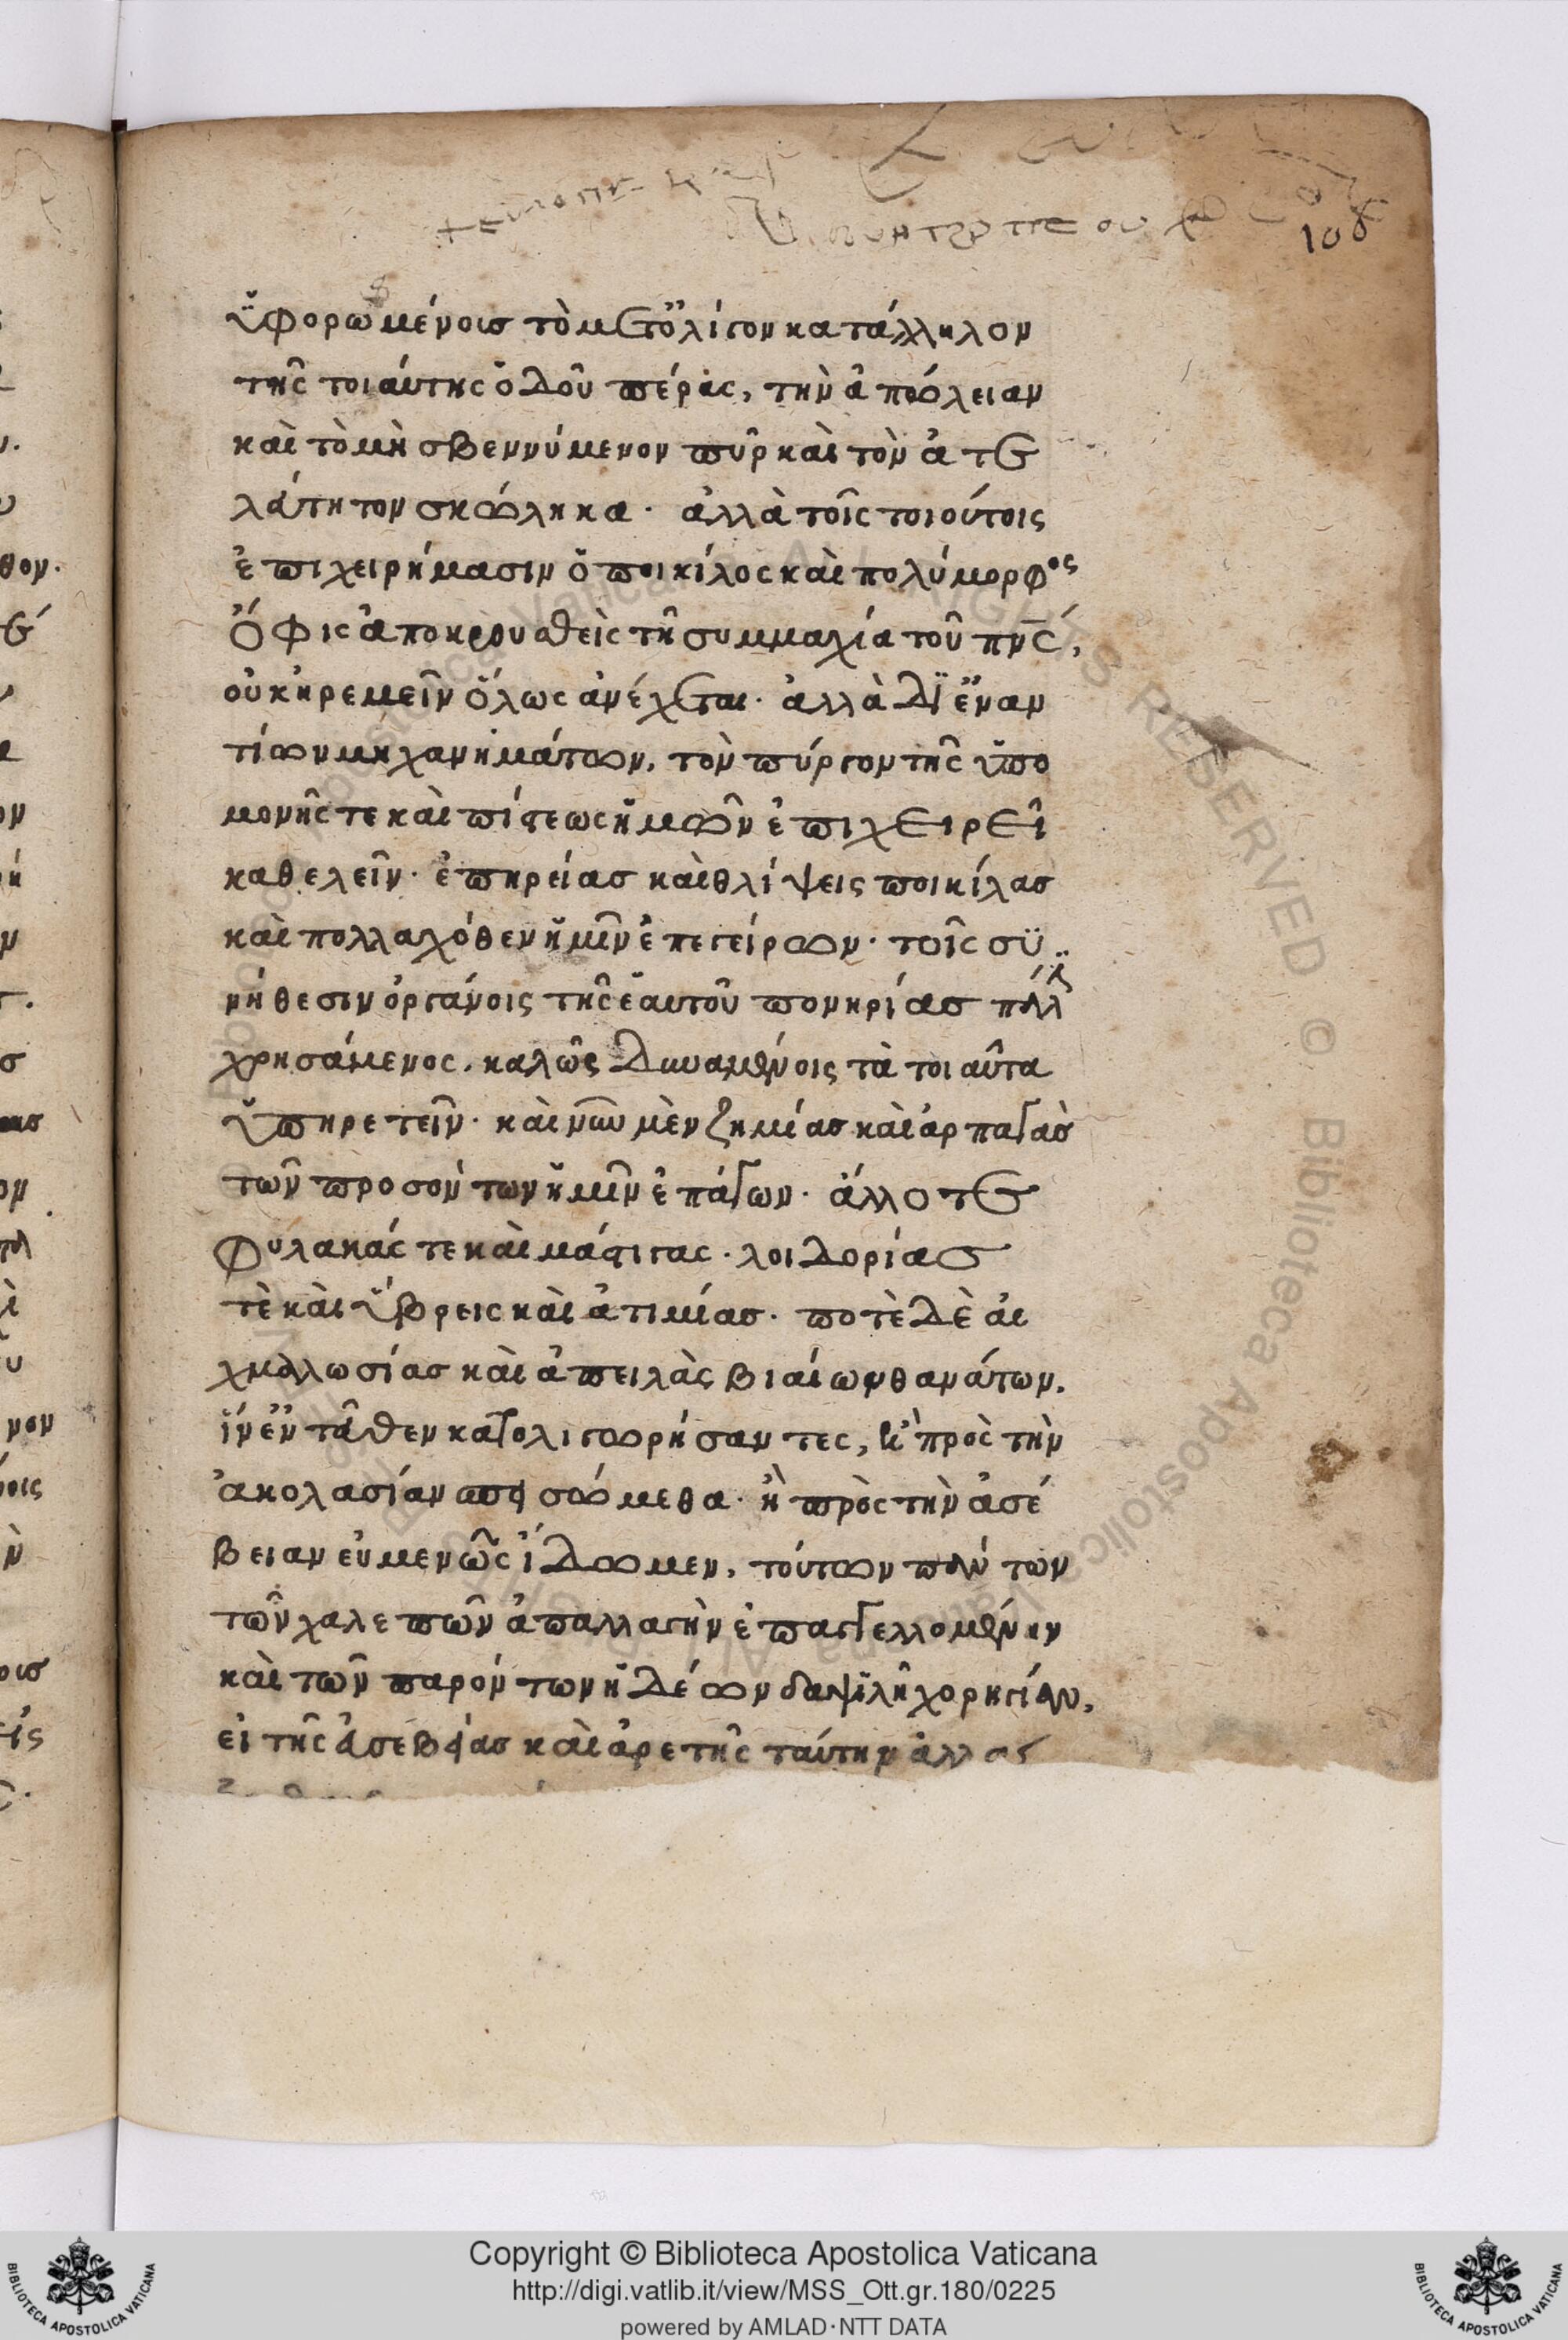 108
ὑφορωμένοισ τὸ μετ ὀλίγον κατάλληλον
τῆς τοιαύτης ὁδοῦ πέρας, τὴν ἀπώλειαν
καὶ τὸ μὴ σβεννύμενον πῦρ καὶ τὸν ἀτε
λάτητον σκώληκα· ἀλλὰ τοῖς τοιούτοις
ἐπιχειρήμασιν ὁ ποικίλος καὶ πολύμορφος
ὄφις ἀποκρουσθεὶς τῆ συμμαχία τοῦ πνς,
οὐκ ἠρεμεῖν ὅλως ἀνέχεται· ἀλλὰ δι ἐναν
τίων μηχανημάτων, τὸν πύργον τῆς ὑπο
μονῆς τε καὶ πίστεως ἡμῶν ἐπιχειρεῖ
καθελεῖν· ἐπηρείασ καὶ θλίψεις ποικίλασ
καὶ πολλαχόθεν ἡμῖν ἐπεγείρων· τοῖς συ
νήθεσιν ὀργάνοις τῆς ἑαυτοῦ πονηρίασ
χρησάμενος. καλῶς δυναμένοις τὰ τοιαῦτα
ὑπηρετεῖν· καὶ νῦν μὲν ζημίασ καὶ ἁρπαγὰσ
τῶν προσόντων ἡμῖν ἐπάγων· ἄλλοτε
φυλακάς τε καὶ μάστιγας· λοιδορίασ
τὲ καὶ ὕβρεις καὶ ἀτιμίασ· ποτὲ δὲ αἰ
χμαλωσίασ καὶ ἀπειλὰς βιαίων θανάτων.
ἵν ἐντᾶθεν κατολιγωρήσαντες, ἢ πρὸς τὴν
ἀκολασίαν πεισώμεθα· ἢ πρὸς τὴν ἀσέ
βειαν εὐμενῶς ἴδωμεν, τούτων πάντων
τῶν χαλεπῶν ἀπαλλαγὴν ἐπαγγελλομένην
καὶ τῶν παρόντων ἡδέων δαψιλῆ χορηγίαν,
εἰ τῆς ἀσεβείασ καὶ ἀρετῆς ταύτην
Copyright © Biblioteca Apostolica Vaticana
http://digi.vatlib.it/view/MSS_Ott.gr.180/0225
powered by AMLAD·NTT DATA